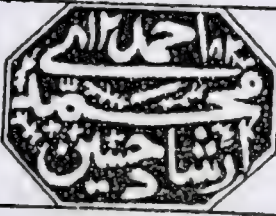 احمدی
محمد
ارشاد حسین